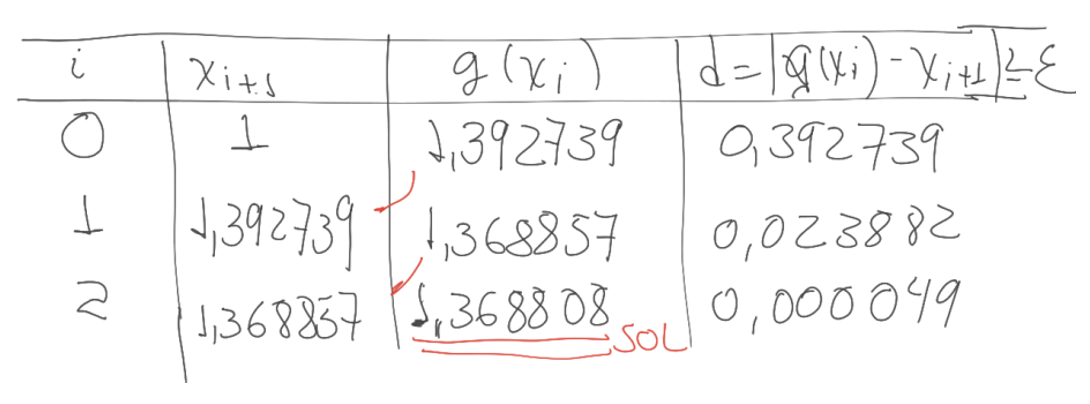 i x_{i+1} g(x_i) d = |g(x_i) - x_{i+1}| ≤ ε
0 1 1,392739 0,392739
1 1,392739 1,368857 0,023882
2 1,368857 1,368808 0,000049
SOL